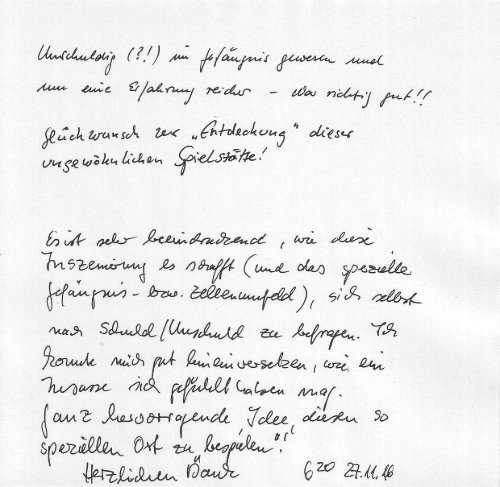 Unschuldig (?!) im Gefängnis gewesen und
um eine Erfahrung reicher – War richtig gut!!
Glückwunsch zur „Entdeckung" dieser
ungewöhnlichen Spielstätte!
Es ist sehr beeindruckend, wie diese
Inszenierung es schafft (und das spezielle
Gefängnis- bzw. Zellenumfeld), sich selbst
nach Schuld/Unschuld zu befragen. Ich
konnte mich gut hineinversetzen, wie ein
Insasse sich gefühlt haben mag.
Ganz hervorragende Idee, diesen so
speziellen Ort zu „bespielen"!
Herzlichen Dank 27.11.16